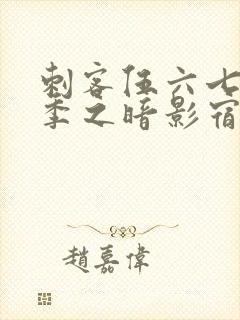 刺客伍六七
季之暗影宿
趙嘉偉